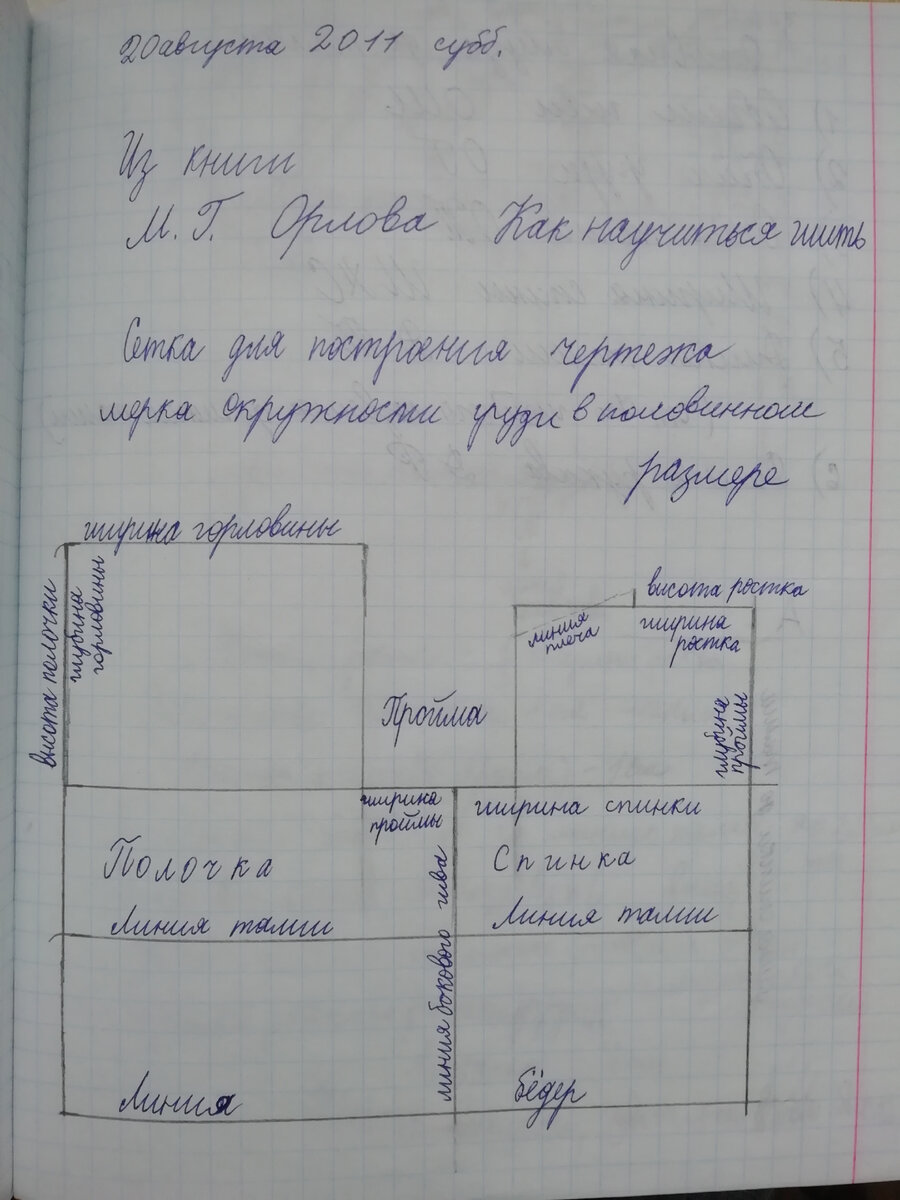 20 августа 2011 субб.
Из книги
М. Г. Орлова Как научиться шить
Сетка для построения чертежа
мерка окружности груди в половинном
размере
ширина горловины
высота полочки
глубина
горловины
высота ростка
линия
плеча
ширина
ростка
Пройма
глубина
проймы
ширина
проймы
ширина спинки
Полочка
Спинка
Линия талии
Линия талии
линия бокового шва
Линия
бёдер